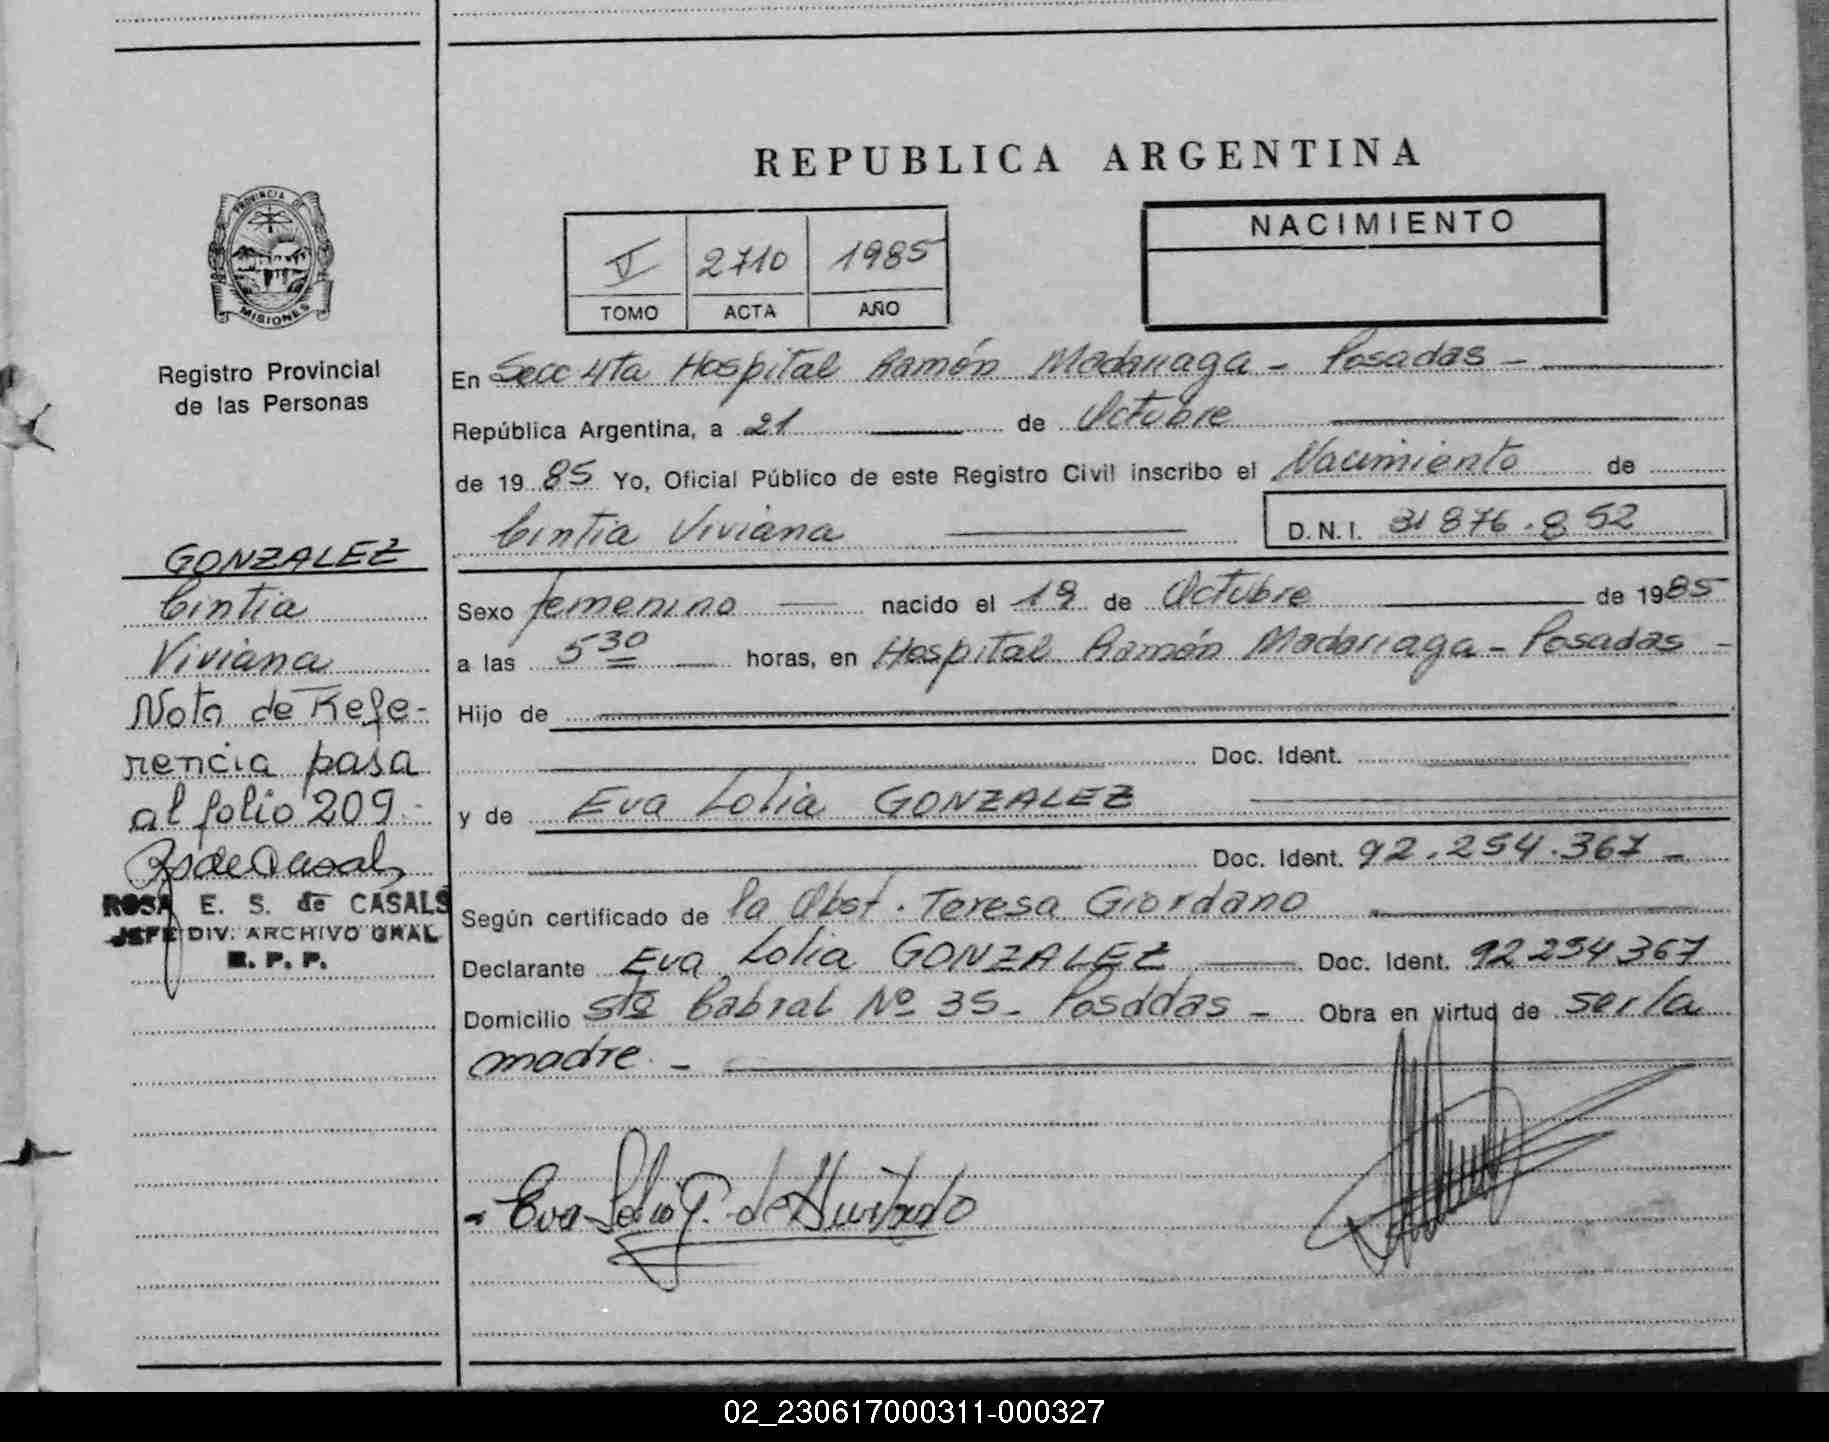 REPUBLICA ARGENTINA
PROVINCIA DE
MISIONES
Registro Provincial
de las Personas
V 2710 1985
TOMO ACTA AÑO
NACIMIENTO
En Secc 4ta Hospital Ramón Madariaga - Posadas -
República Argentina, a 21 de Octubre
de 1985 Yo, Oficial Público de este Registro Civil inscribo el Nacimiento de
Cintia Viviana
D.N.I. 31876.852
GONZALEZ
Cintia
Viviana
Nota de Refe-
rencia pasa
al folio 209.
ROSA E. S. de CASALS
JEFE DIV. ARCHIVO GRAL
R. P. P.
Sexo femenino nacido el 19 de Octubre de 1985
a las 5 30 horas, en Hospital Ramón Madariaga - Posadas -
Hijo de
Doc. Ident.
y de Eva Lolia GONZALEZ
Doc. Ident. 92.254.367 -
Según certificado de la Obst. Teresa Giordano
Declarante Eva Lolia GONZALEZ Doc. Ident. 92254367
Domicilio Sto Cabral Nº 35 - Posadas - Obra en virtud de ser la
madre. -
Eva Lolia G. de Hurtado
02_230617000311-000327